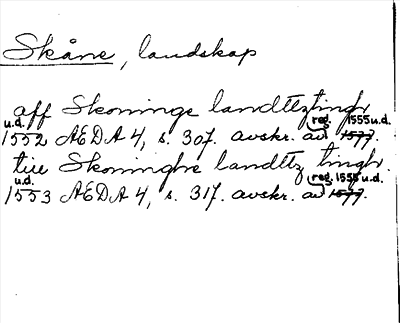 Skåne, landskap
aff Skoninge landttztingh
u.d. reg. 1555 u.d.
1552 AEDA 4, s. 307. avskr. av 1577.
tiil Skoninghe landttz tingh.
u.d. reg. 1555 u.d.
1553 AEDA 4, s. 317. avskr. av 1577.